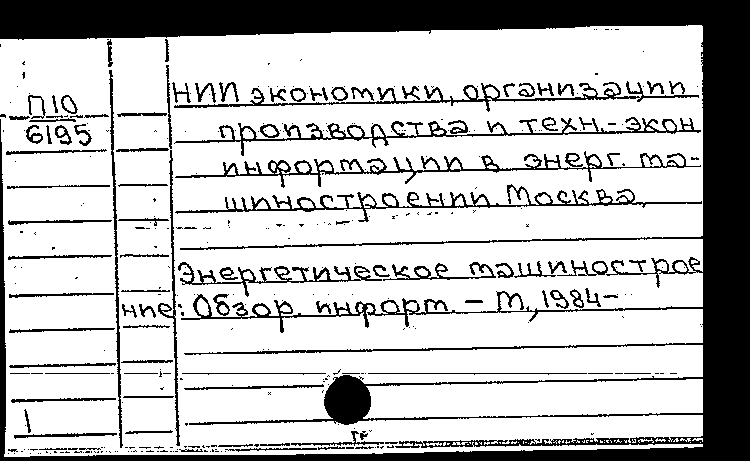 П10
6195
НИИ экономики, организации
производства и техн.-экон
информации в энерг. ма-
шиностроении. Москва.
Энергетическое машинострое
ние: Обзор. информ. – М., 1984–
1